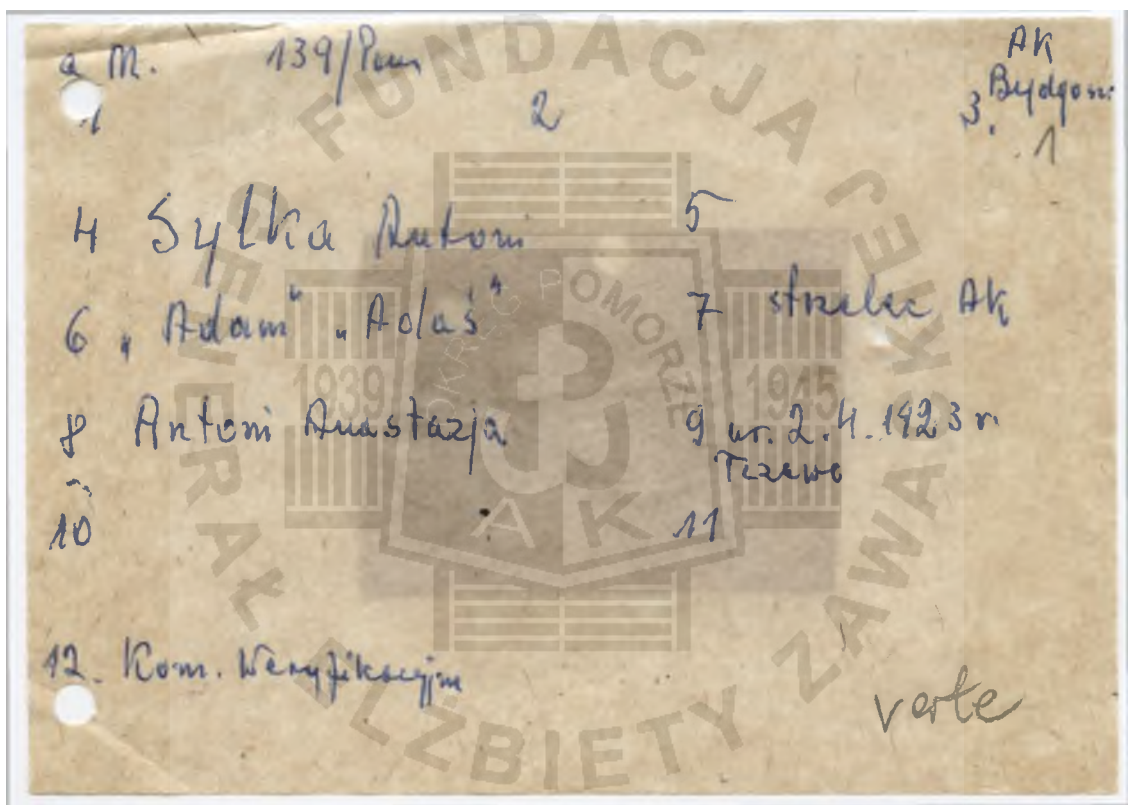 a M. 139/Pom AK
Bydgosz.
1 2 3. 1
4 Sylka Antoni 5
6 „Adam" „Adaś" 7 strzelec AK
8 Antoni Anastazja 9 ur. 2.4.1923 r.
Tczewo
10 11
12. Kom. Weryfikacyjna
verte
FUNDACJA GENERAŁ ELŻBIETY ZAWACKIEJ
OKRĘG POMORZE
1939 1945
AK